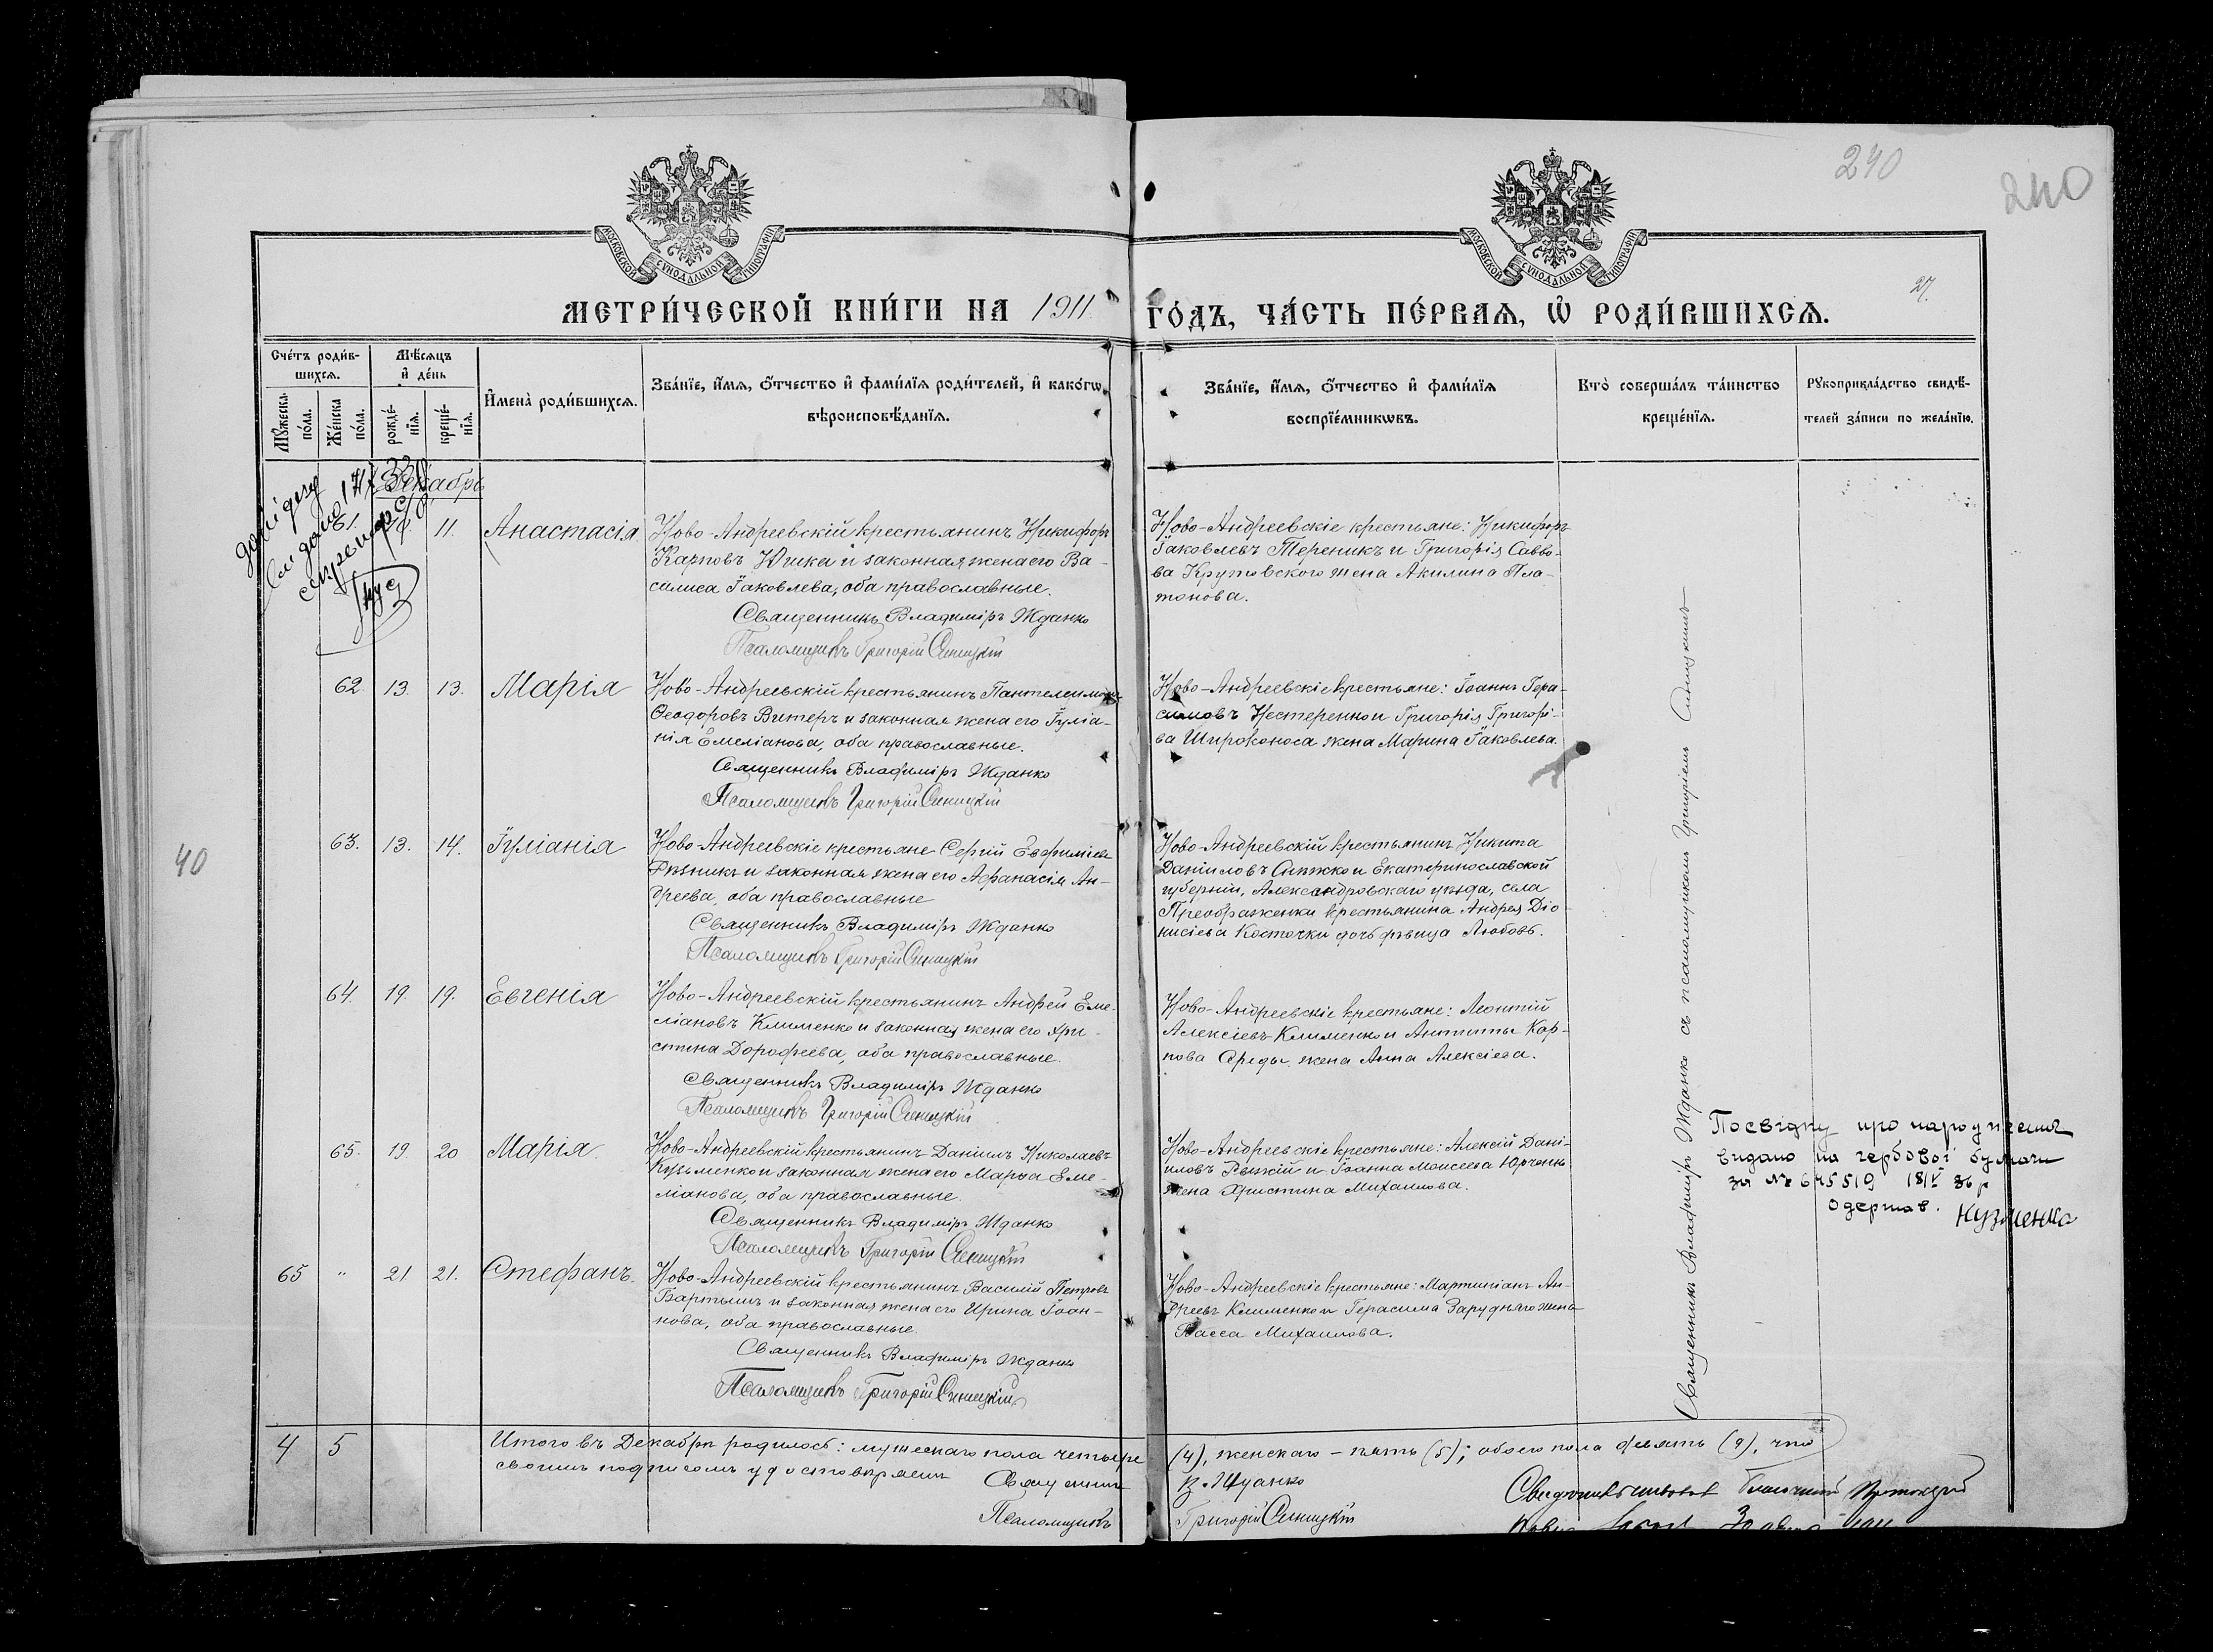 240
240
27.
40
МОСКОВСКОЙ СѴНОДАЛЬНОЙ ТИПОГРАФІИ
МОСКОВСКОЙ СѴНОДАЛЬНОЙ ТИПОГРАФІИ
МЕТРИ́ЧЕСКОЙ КНИ́ГИ НА 1911 ГО́ДЪ, ЧА́СТЬ ПЕ́РВАЯ, Ѡ РОДИ́ВШИХСЯ.
Сче́тъ роди́вшихся.
Мѹжеска по́ла.
Же́нска по́ла.
Мѣ́сяцъ и҆ де́нь
рожде́нїя.
креще́нїя.
И҆мена̀ роди́вшихся.
Зва́нїе, и҆́мя, ѻ҆́тчество и҆ фами́лїя роди́телей, и҆ како́гѡ
вѣроисповѣ́данїя.
Зва́нїе, и҆́мя, ѻ҆́тчество и҆ фами́лїя
воспрїе́мникѡвъ.
Кто̀ соверша́лъ та́инство
креще́нїя.
Рѹкоприкла́дство свидѣ́-
телей за́писи по жела́нїю.
Декабрь
61. 11. Анастасія
Ново-Андреевскій крестьянинъ Никифоръ
Карповъ Юшка и законная жена его Ва-
силиса Іаковлева, оба православные.
Священникъ Владиміръ Жданко
Псаломщикъ Григорій Синицкій
Ново-Андреевскіе крестьяне: Никифоръ
Іаковлевъ Тереникъ и Григорія Савво-
ва Крутовского жена Акилина Пла-
тонова.
62. 13. 13. Марія
Ново-Андреевскій крестьянинъ Пантелеимонъ
Ѳеодоровъ Витеръ и законная жена его Іуліа-
нія Емеліанова, оба православные.
Священникъ Владиміръ Жданко
Псаломщикъ Григорій Синицкій
Ново-Андреевскіе крестьяне: Іоаннъ Гера-
симовъ Нестеренко и Григорія Григорі-
ва Широконоса жена Марина Іаковлева.
63. 13. 14. Іуліанія
Ново-Андреевскіе крестьяне Сергій Евфиміевъ
Рѣзникъ и законная жена его Афанасія Ан-
дреева, оба православные
Священникъ Владиміръ Жданко
Псаломщикъ Григорій Синицкій
Ново-Андреевскій крестьянинъ Никита
Даніиловъ и Екатеринославской
губерніи, Александровскаго уѣзда, села
Преображенки крестьянина Андрея Діо-
нисіева Косточки дочь дѣвица Любовь.
64. 19. 19. Евгенія
Ново-Андреевскій крестьянинъ Андрей Еме-
ліановъ Клименко и законная жена его Хри-
стина Дорофеева, оба православные.
Священникъ Владиміръ Жданко
Псаломщикъ Григорій Синицкій
Ново-Андреевскіе крестьяне: Леонтій
Алексіевъ Клименко и Антипы Кар-
пова Среды жена Анна Алексіева.
65. 19. 20 Марія
Ново-Андреевскій крестьянинъ Даніилъ Николаевъ
Кузьменко и законная жена его Марѳа Еме-
ліанова, оба православные.
Священникъ Владиміръ Жданко
Псаломщикъ Григорій Синицкій
Ново-Андреевскіе крестьяне: Алексій Дані-
иловъ Рыжій и Іоанна Моисеева Юрченко
жена Христина Михаилова.
Посвідку про народження
видано на гербовой бумаги
за № 645519 18/IV 36 р
Одержав. Кузменко
65 " 21 21. Стефанъ.
Ново-Андреевскій крестьянинъ Василій Петровъ
Бартышъ и законная жена его Ирина Іоан-
нова, оба православные.
Священникъ Владиміръ Жданко
Псаломщикъ Григорій Синицкій
Ново-Андреевскіе крестьяне: Мартиніанъ Ан-
дреевъ Клименко и Герасима Заруднаго жена
Васса Михаилова.
Священникъ Владиміръ Жданко съ псаломщикомъ Григоріемъ Синицкимъ
4 5
Итого въ Декабрѣ родилось: мужескаго пола четыре (4), женскаго – пять (5); обоего пола девять (9), что
своимъ подписомъ удостовѣряемъ Священникъ В. Жданко
Псаломщикъ Григорій Синицкій
Свидѣтельствовалъ Благочинный Протоіерей